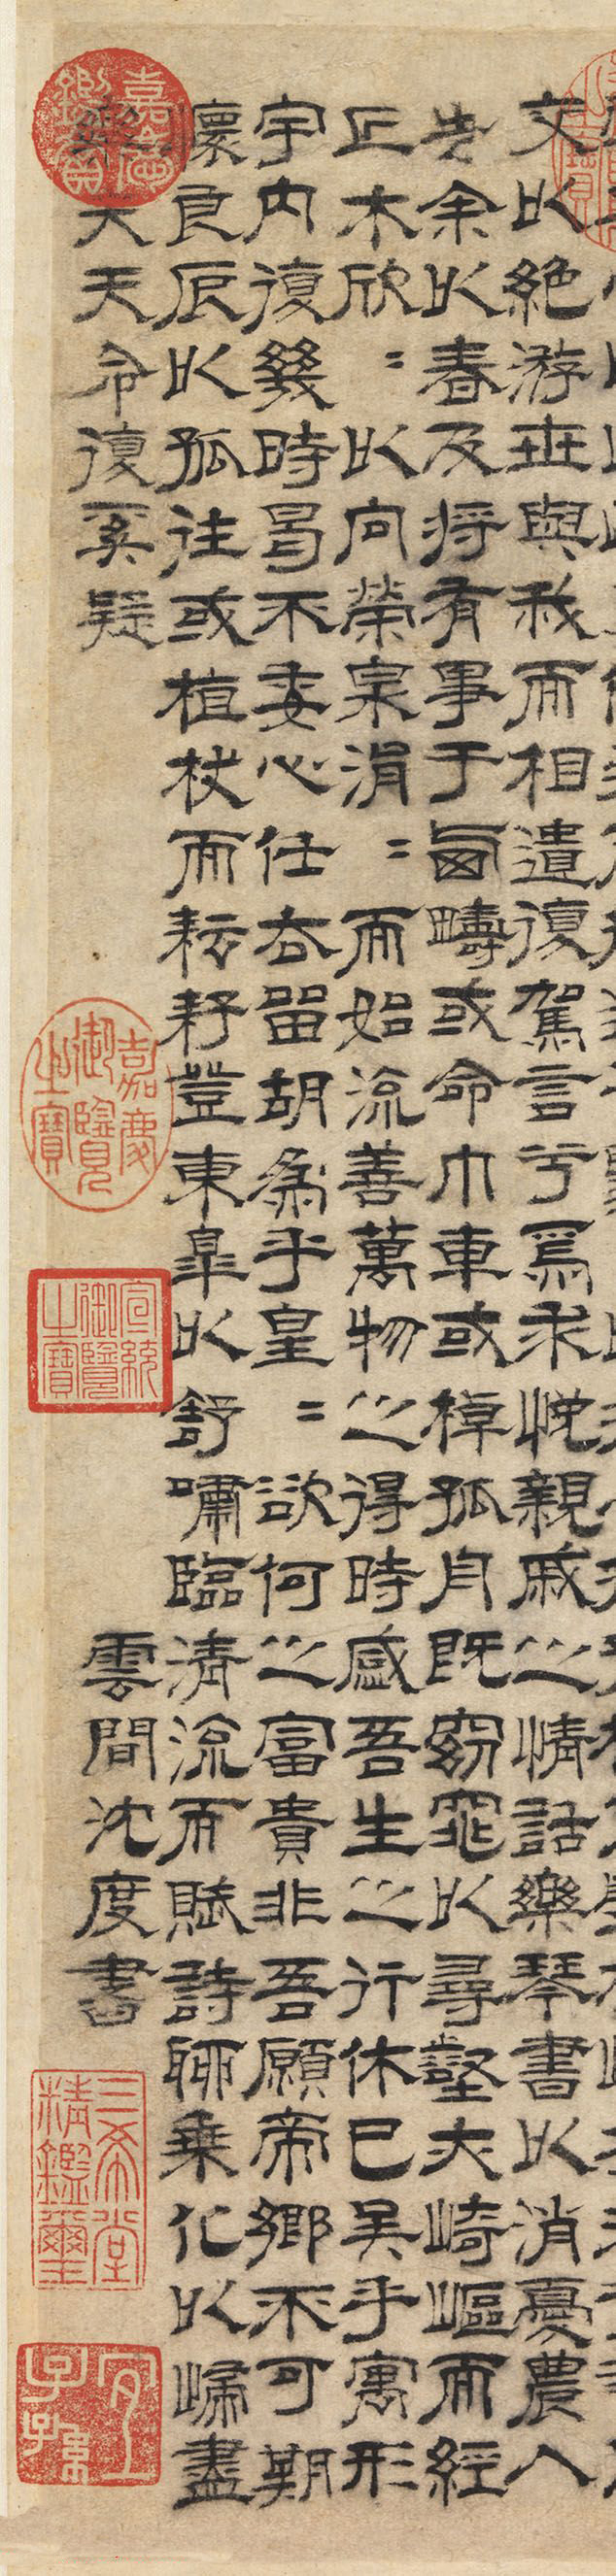 交以絶游世與我而相遺復駕言兮焉求悦親戚之情話樂琴書以消憂農人
告余以春及将有事于西疇或命巾車或棹孤舟既窈窕以尋壑亦崎嶇而經
丘木欣=以向榮泉涓=而始流善萬物之得時感吾生之行休已矣乎寓形
宇内復幾時曷不委心任去留胡為乎皇=欲何之富貴非吾願帝鄉不可期
懷良辰以孤往或植杖而耘耔登東皋以舒嘯臨清流而賦詩聊乗化以歸盡
樂夫天命復奚疑
雲間沈度書
嘉慶鑑賞
嘉慶御覽之寶
宣統御覽之寶
三希堂精鑑璽
宜子孫